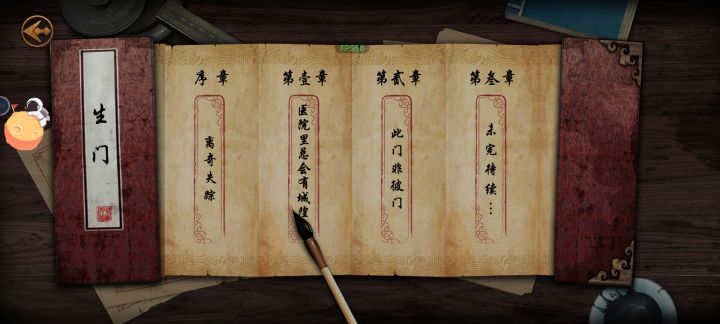 生门
FPS56
序章
离奇失踪
第壹章
医院里总会有城隍
第贰章
此门非彼门
第叁章
未完待续...